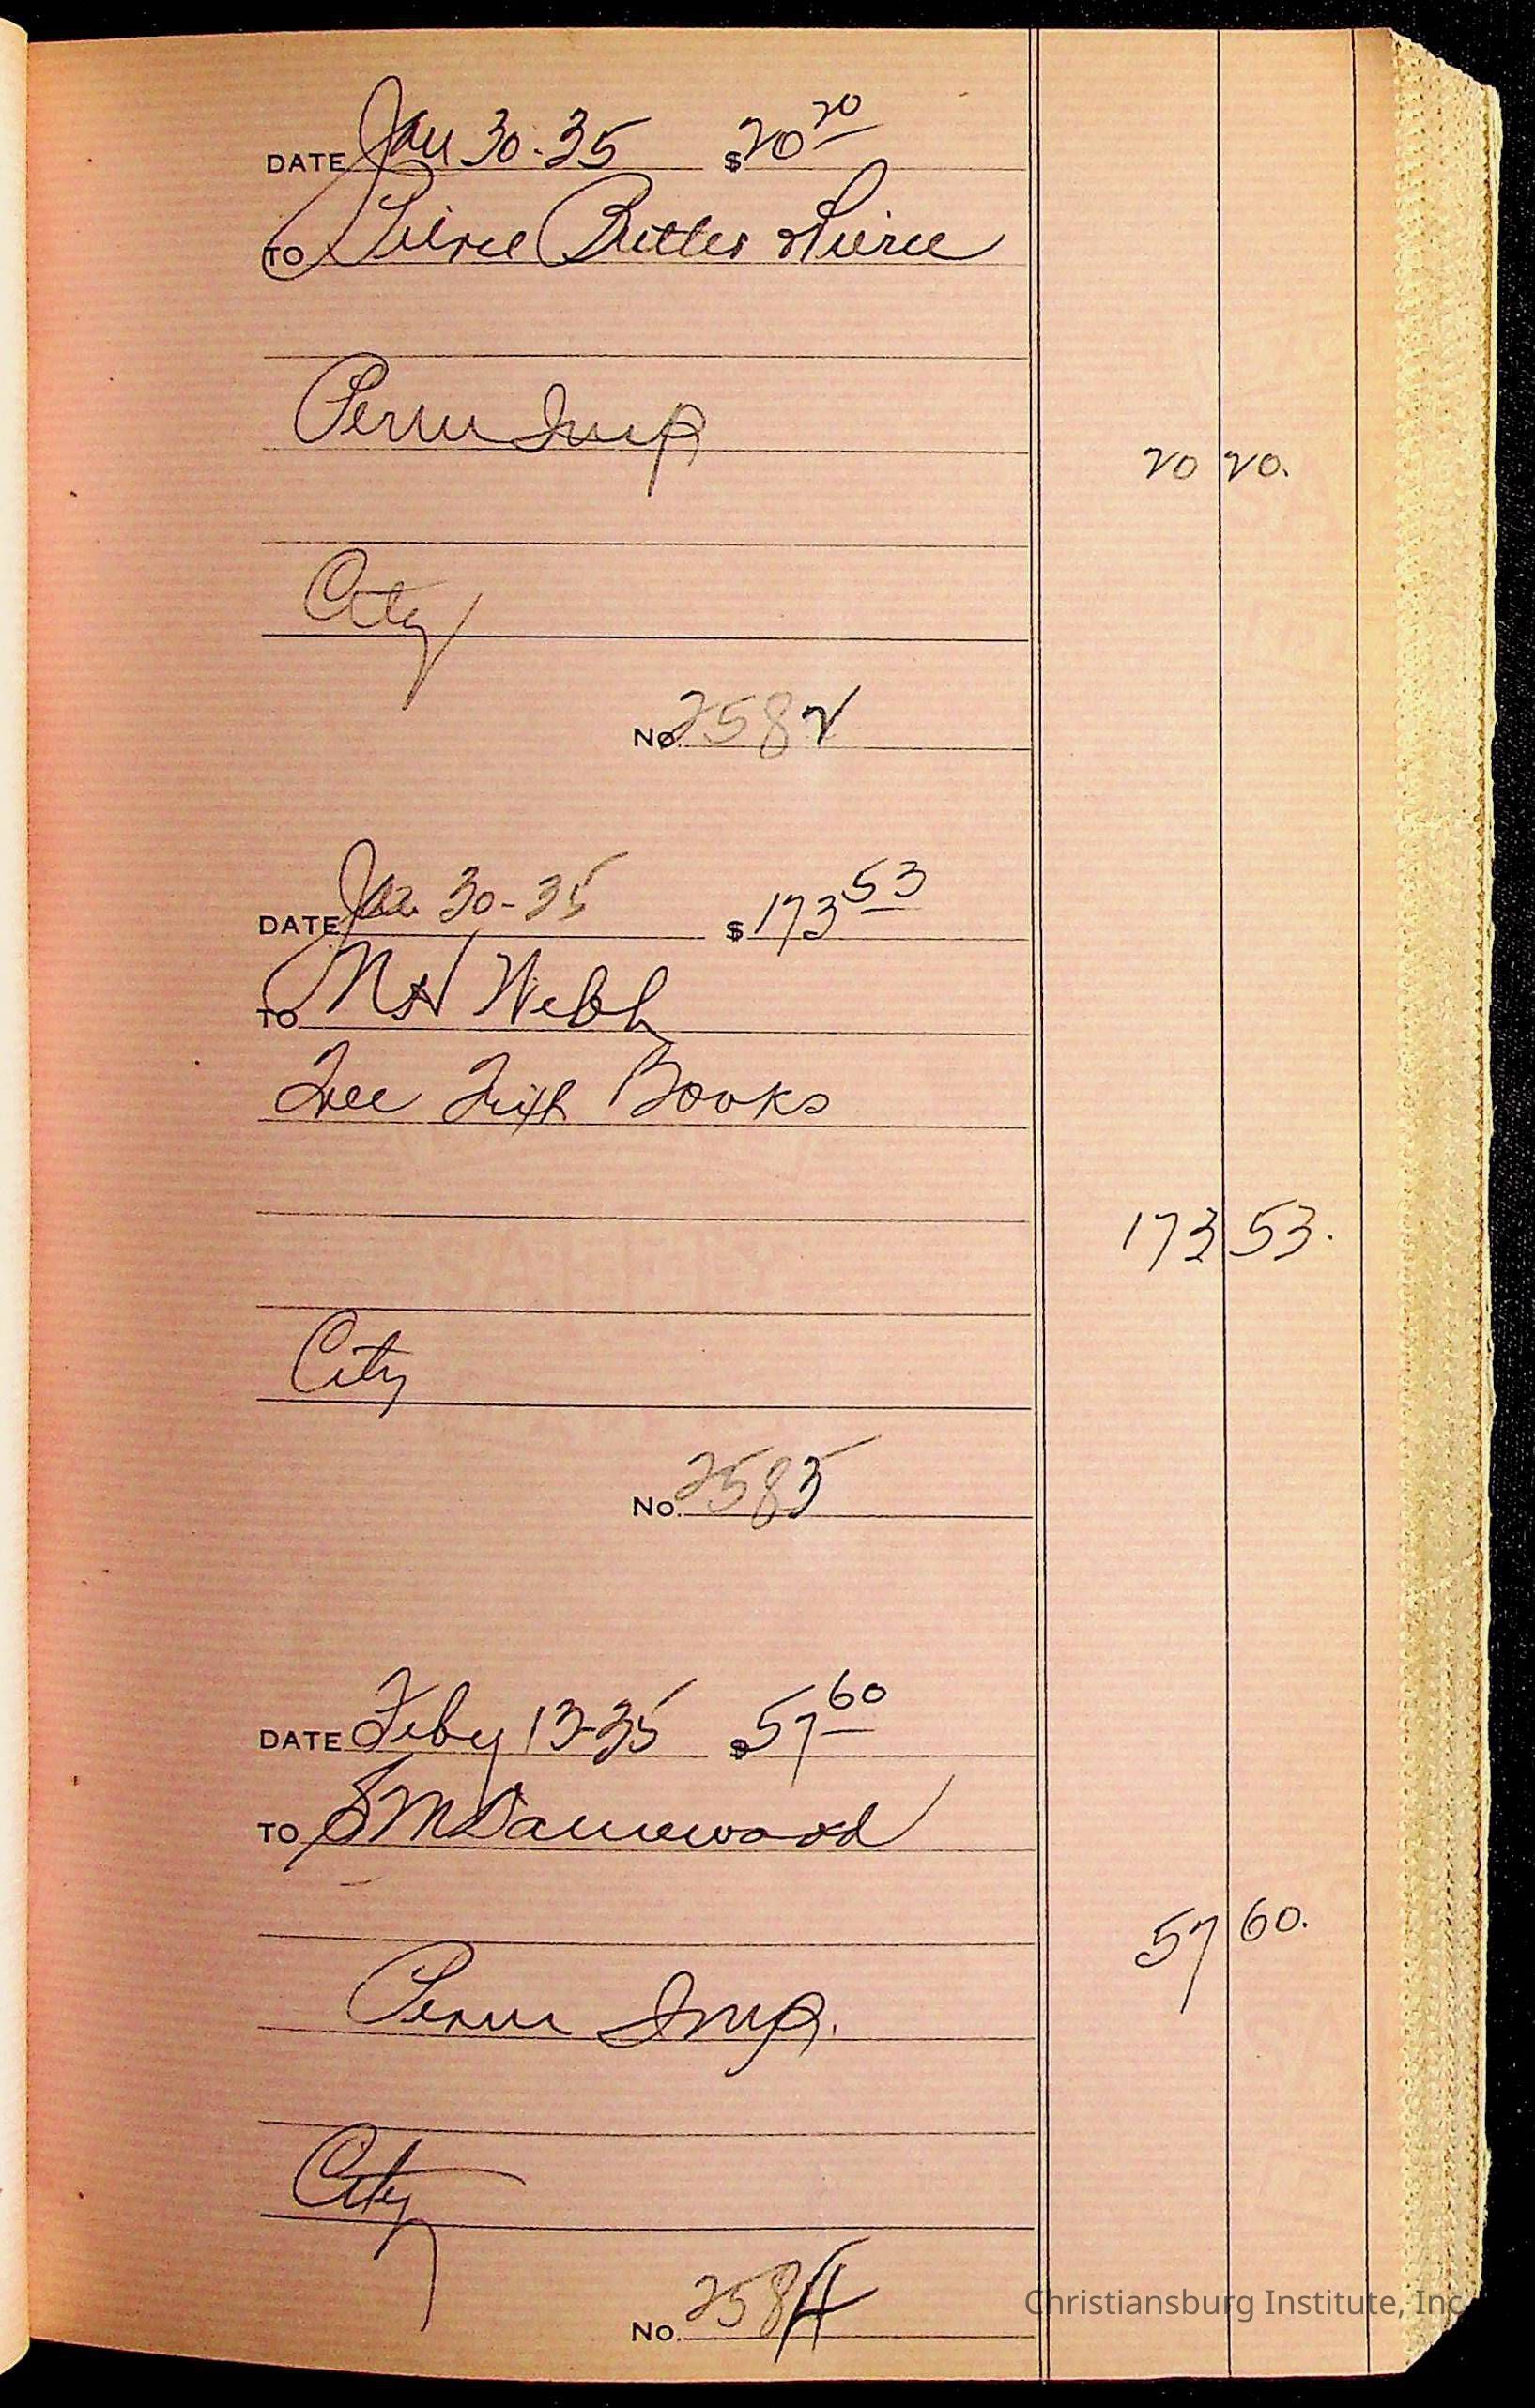 DATE Jan 30-35 $20 20
TO Peirce Butler & Pierce
Perm Imp
20 20.
City
No. 2582
DATE Jan 30-35 $173 53
TO N H Webb
Free Text Books
173 53.
City
No. 2583
DATE Feby 13-35 $57 60
TO S M Dannewood
57 60.
Perm Imp.
City
No. 2584
Christiansburg Institute, Inc.